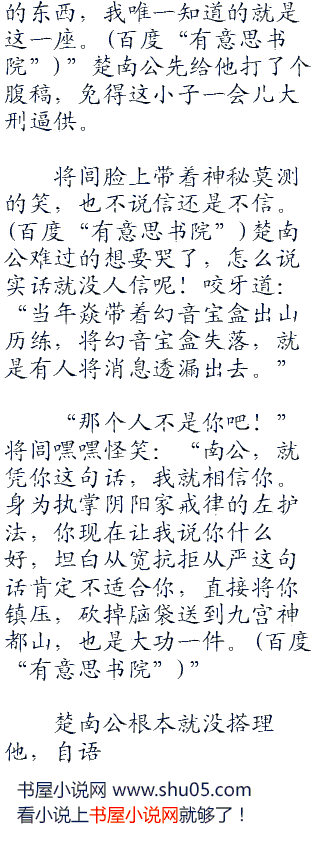 的东西，我唯一知道的就是
这一座。(百度“有意思书
院”)”楚南公先给他打了个
腹稿，免得这小子一会儿大
刑逼供。
将闾脸上带着神秘莫测
的笑，也不说信还是不信。
(百度“有意思书院”)楚南
公难过的想要哭了，怎么说
实话就没人信呢！咬牙道：
“当年焱带着幻音宝盒出山
历练，将幻音宝盒失落，就
是有人将消息透漏出去。”
“那个人不是你吧！”
将闾嘿嘿怪笑：“南公，就
凭你这句话，我就相信你。
身为执掌阴阳家戒律的左护
法，你现在让我说你什么
好，坦白从宽抗拒从严这句
话肯定不适合你，直接将你
镇压，砍掉脑袋送到九宫神
都山，也是大功一件。(百度
“有意思书院”)”
楚南公根本就没搭理
他，自语
书屋小说网 www.shu05.com
看小说上书屋小说网就够了！